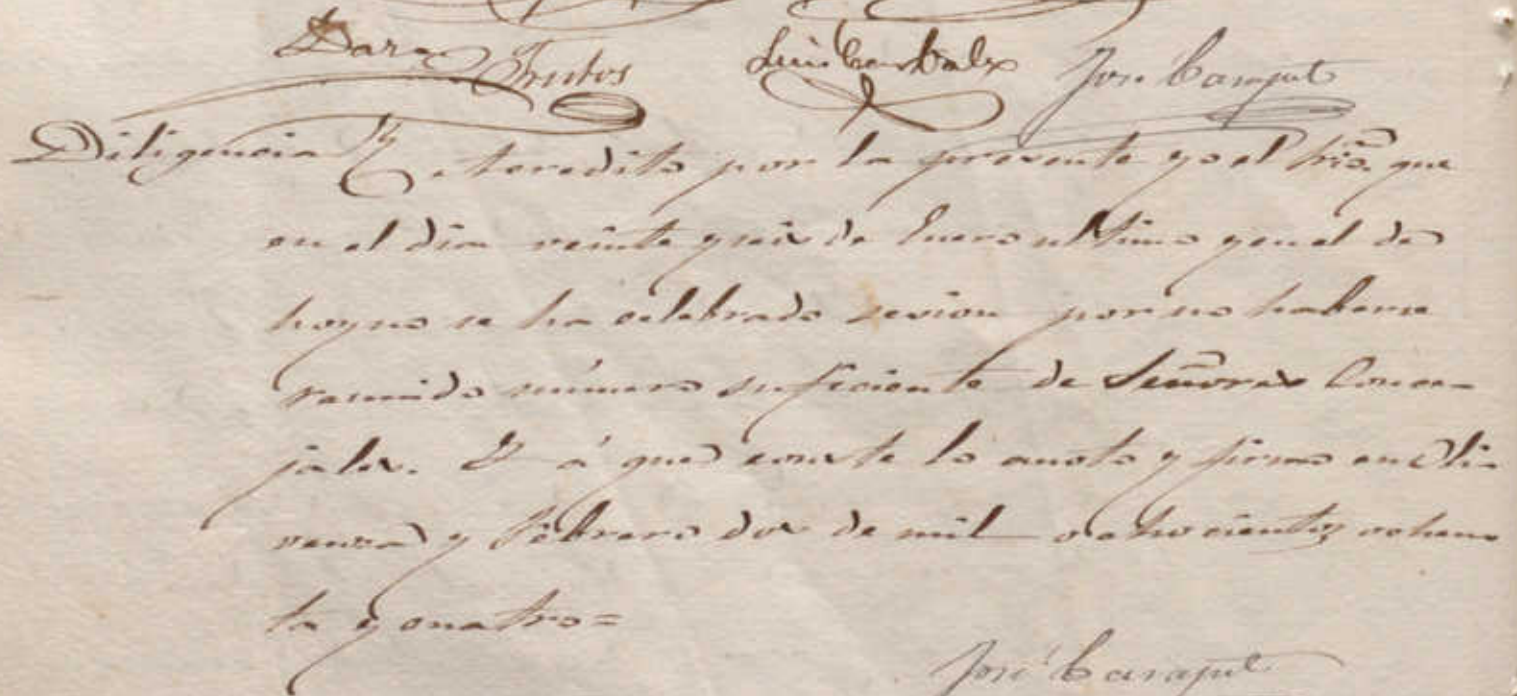 Frutos José Carapet
Diligencia Acredito por la presente yo el Srio. que
en el dia veinte y seis de Enero ultimo y en el de
hoy no se ha celebrado sesion por no haberse
reunido número suficiente de Señores Conce-
jales. Y á que conste lo anoto y firmo en Oli-
venza y Febrero dos de mil ochocientos ochen
ta y cuatro=
José